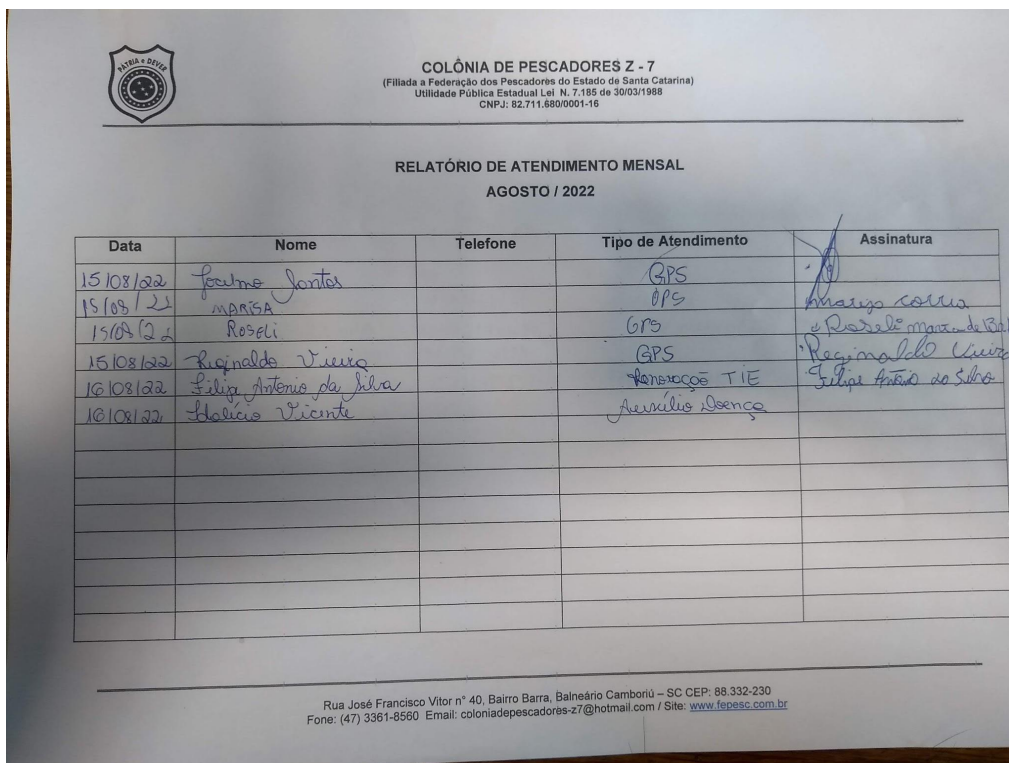 PÁTRIA e DEVER
COLÔNIA DE PESCADORES Z - 7
(Filiada a Federação dos Pescadores do Estado de Santa Catarina)
Utilidade Pública Estadual Lei N. 7.185 de 30/03/1988
CNPJ: 82.711.680/0001-16
RELATÓRIO DE ATENDIMENTO MENSAL
AGOSTO / 2022
Data Nome Telefone Tipo de Atendimento Assinatura
15/08/22 Santos GPS
15/08/22 MARISA GPS Mariza Correa
15/08/22 Roseli GPS Roseli
15/08/22 Reginaldo Vieira GPS Reginaldo Vieira
16/08/22 Filipe Antonio da Silva Renovação TIE Filipe Antônio da Silva
16/08/22 Idalício Vicente Auxílio Doença
Rua José Francisco Vitor n° 40, Bairro Barra, Balneário Camboriú – SC CEP: 88.332-230
Fone: (47) 3361-8560 Email: coloniadepescadores-z7@hotmail.com / Site: www.fepesc.com.br